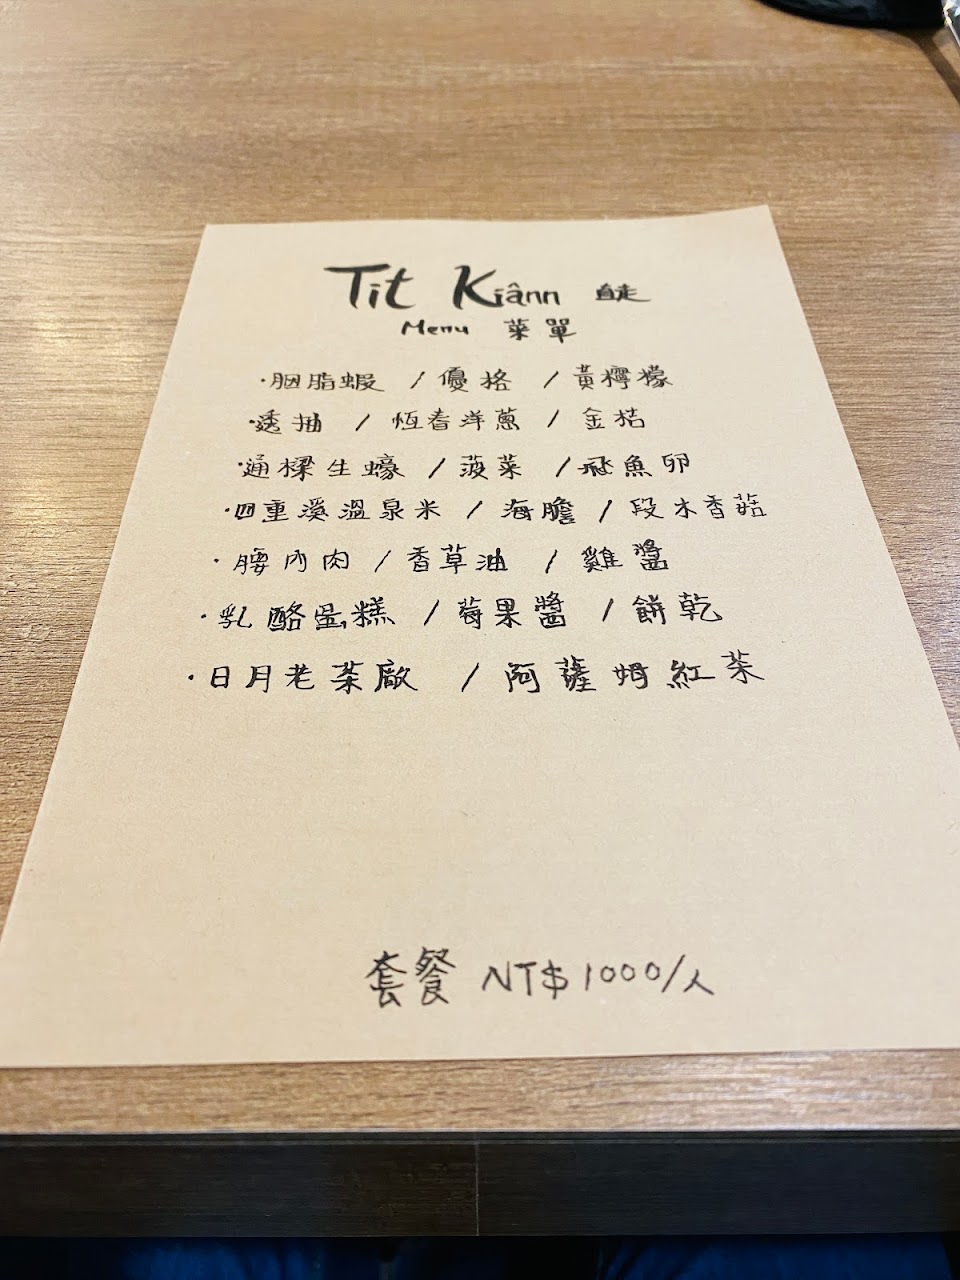 Tit Kiânn 直走
Menu 菜單
·胭脂蝦 / 優格 / 黃檸檬
·透抽 / 恆春洋蔥 / 金桔
·通樑生蠔 / 菠菜 / 飛魚卵
·四重溪溫泉米 / 海膽 / 段木香菇
·腰內肉 / 香草油 / 雞醬
·乳酪蛋糕 / 莓果醬 / 餅乾
·日月老茶廠 / 阿薩姆紅茶
套餐 NT$1000/人